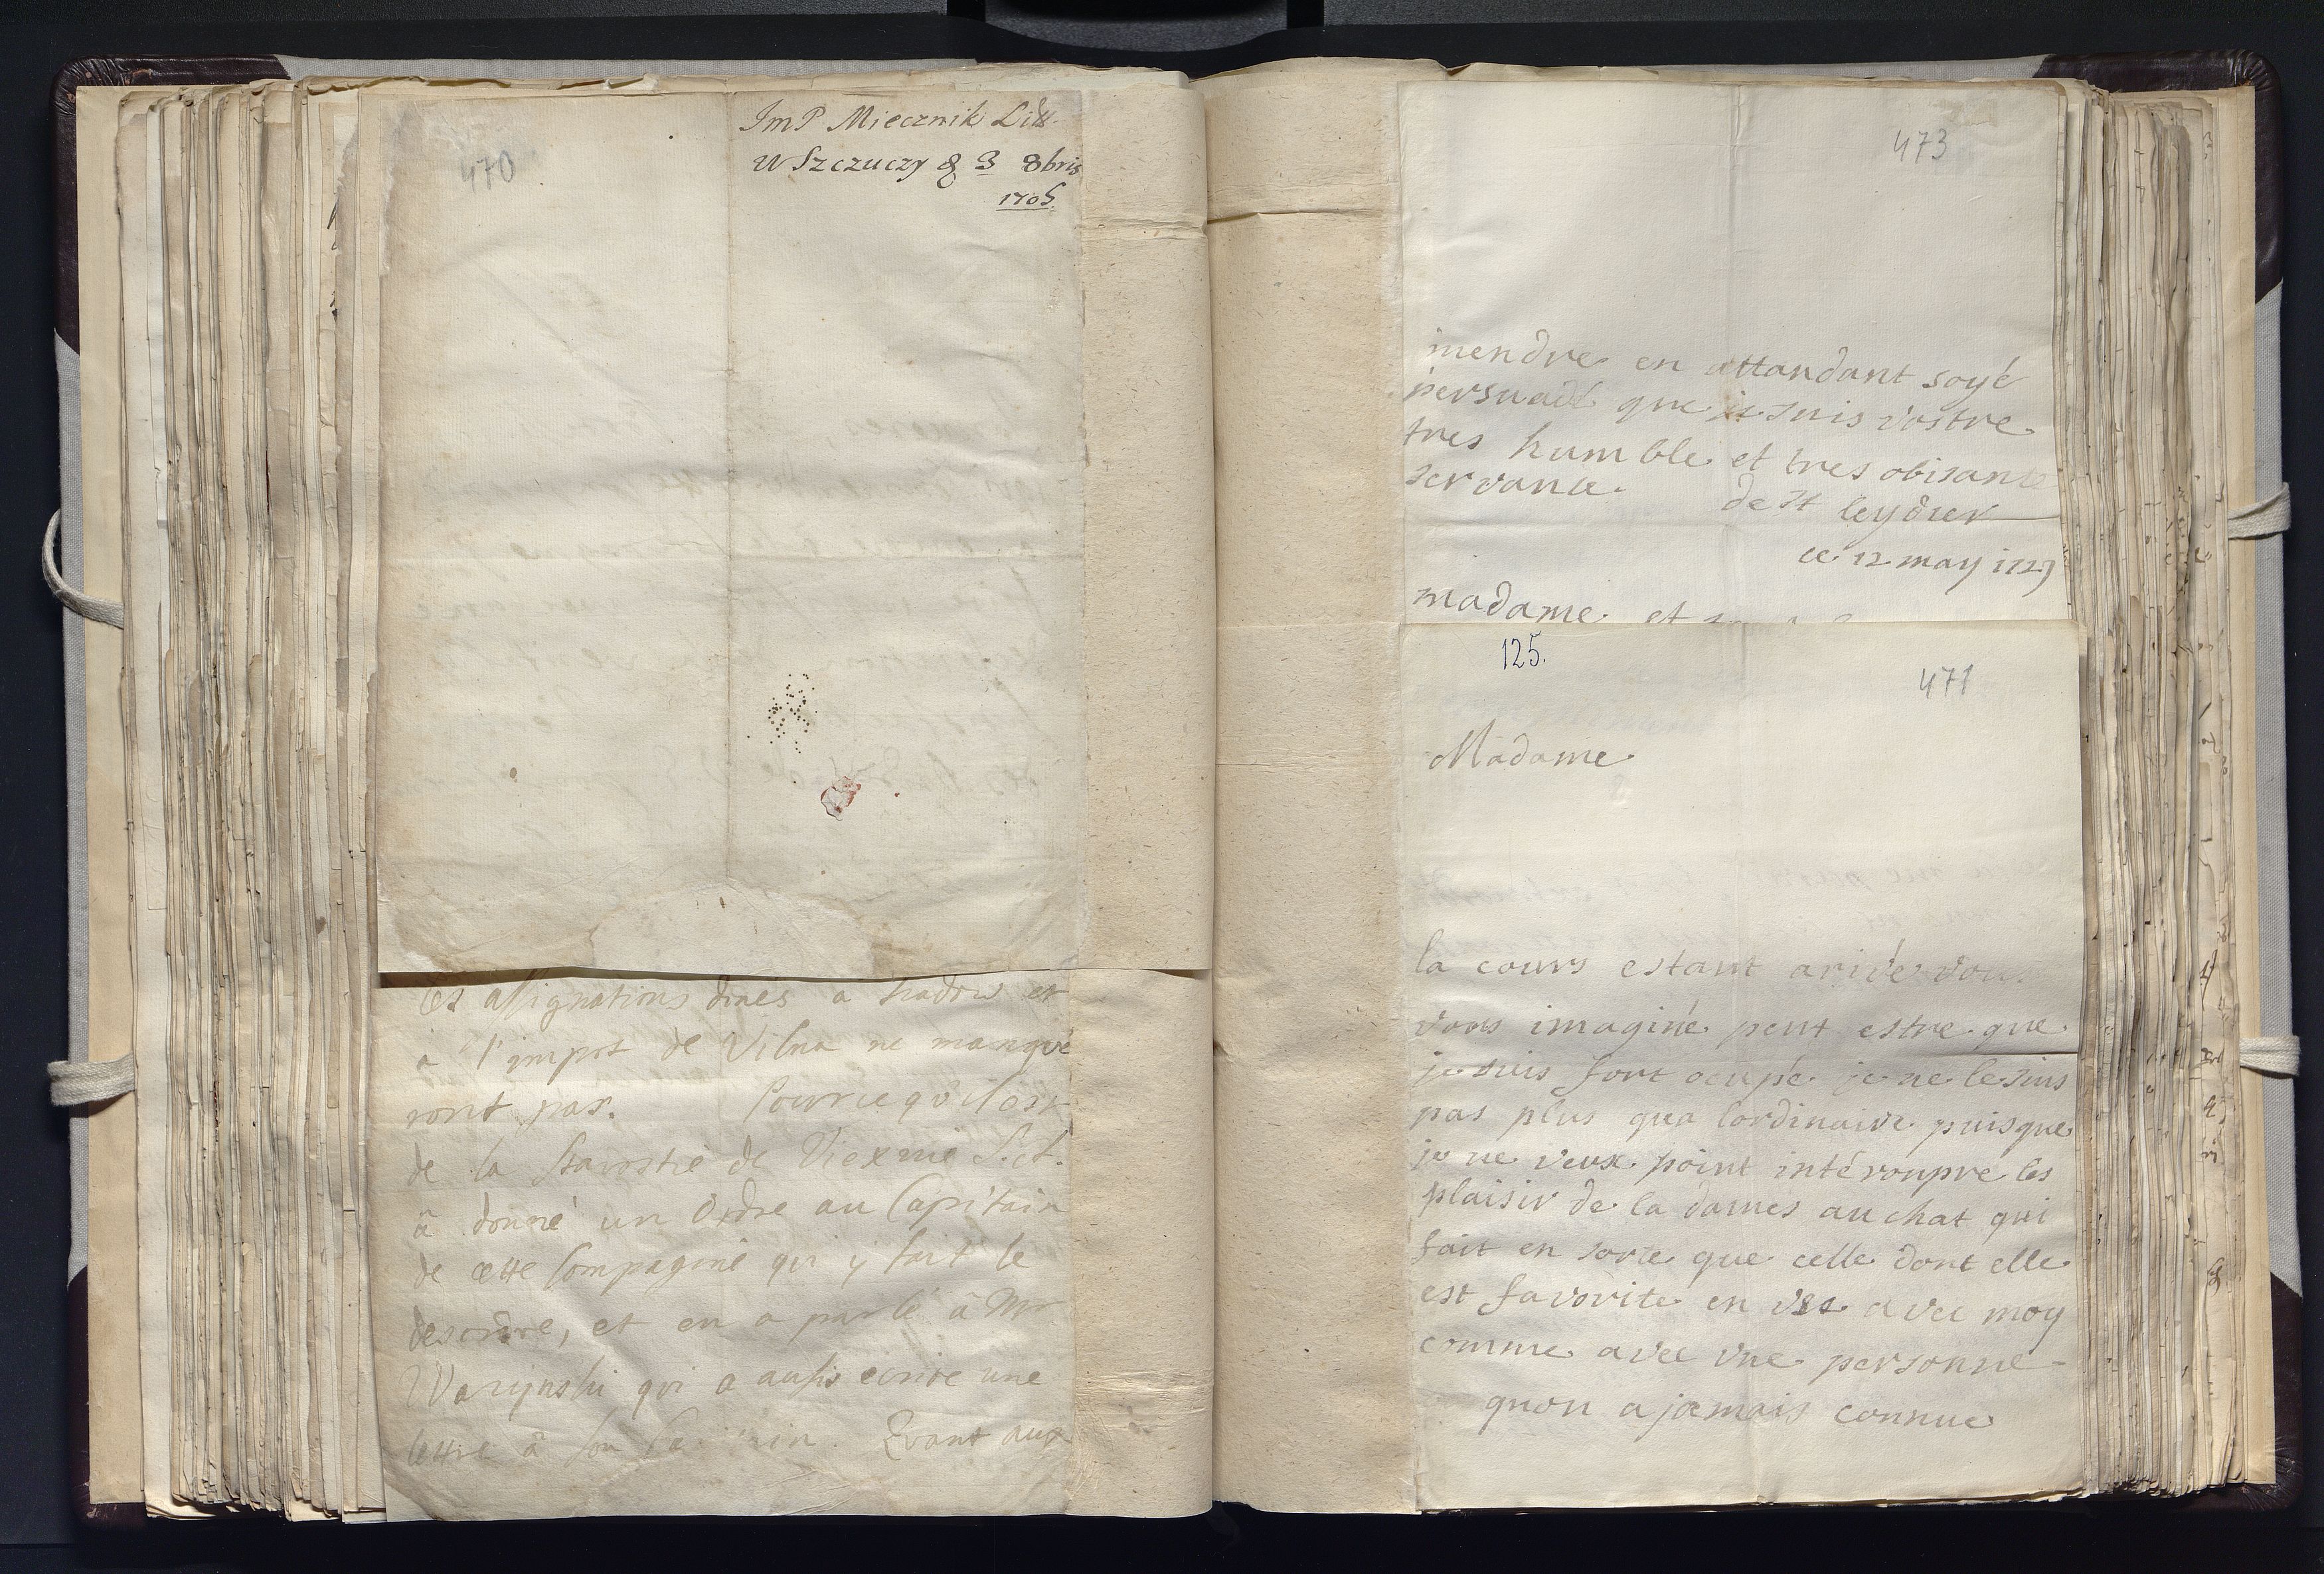 470
JmP Miecznik Litt.
W Szczuczy & 3 8bris
1705.
les assignations dnés a hadow et
à l'impot de Vilna ne manqué
ront pas. Pour ce qu'il est
de la Starostié de Viexnie S.A.
â donné un Ordre au Capitain
de cette Compagnie qui y fait le
desordre, et en a parlé â Mr
Warynski qui a aussi ecrite une
lettre â son Quant aux
473
mendre en attandant soyé
persuadé que je suis vostre
tres humble et tres obisante
servante. de St leydier
ce 12 may 1729
madame et
125.
471
Madame
la cours estant arivée vous
vous imaginé peut estre que
je suis fort ocupé je ne le suis
pas plus qua lordinaire puisque
je ne veux point intéroupre les
plaisir de la dames au chat qui
fait en sorte que celle dont elle
est favorite en vse avec moy
comme avec vne personne
quon a jamais connue